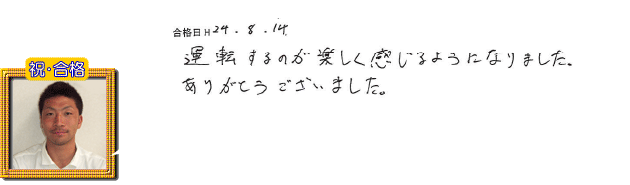 合格日 H24.8.14
運転するのが楽しく感じるようになりました。
ありがとうございました。
祝・合格